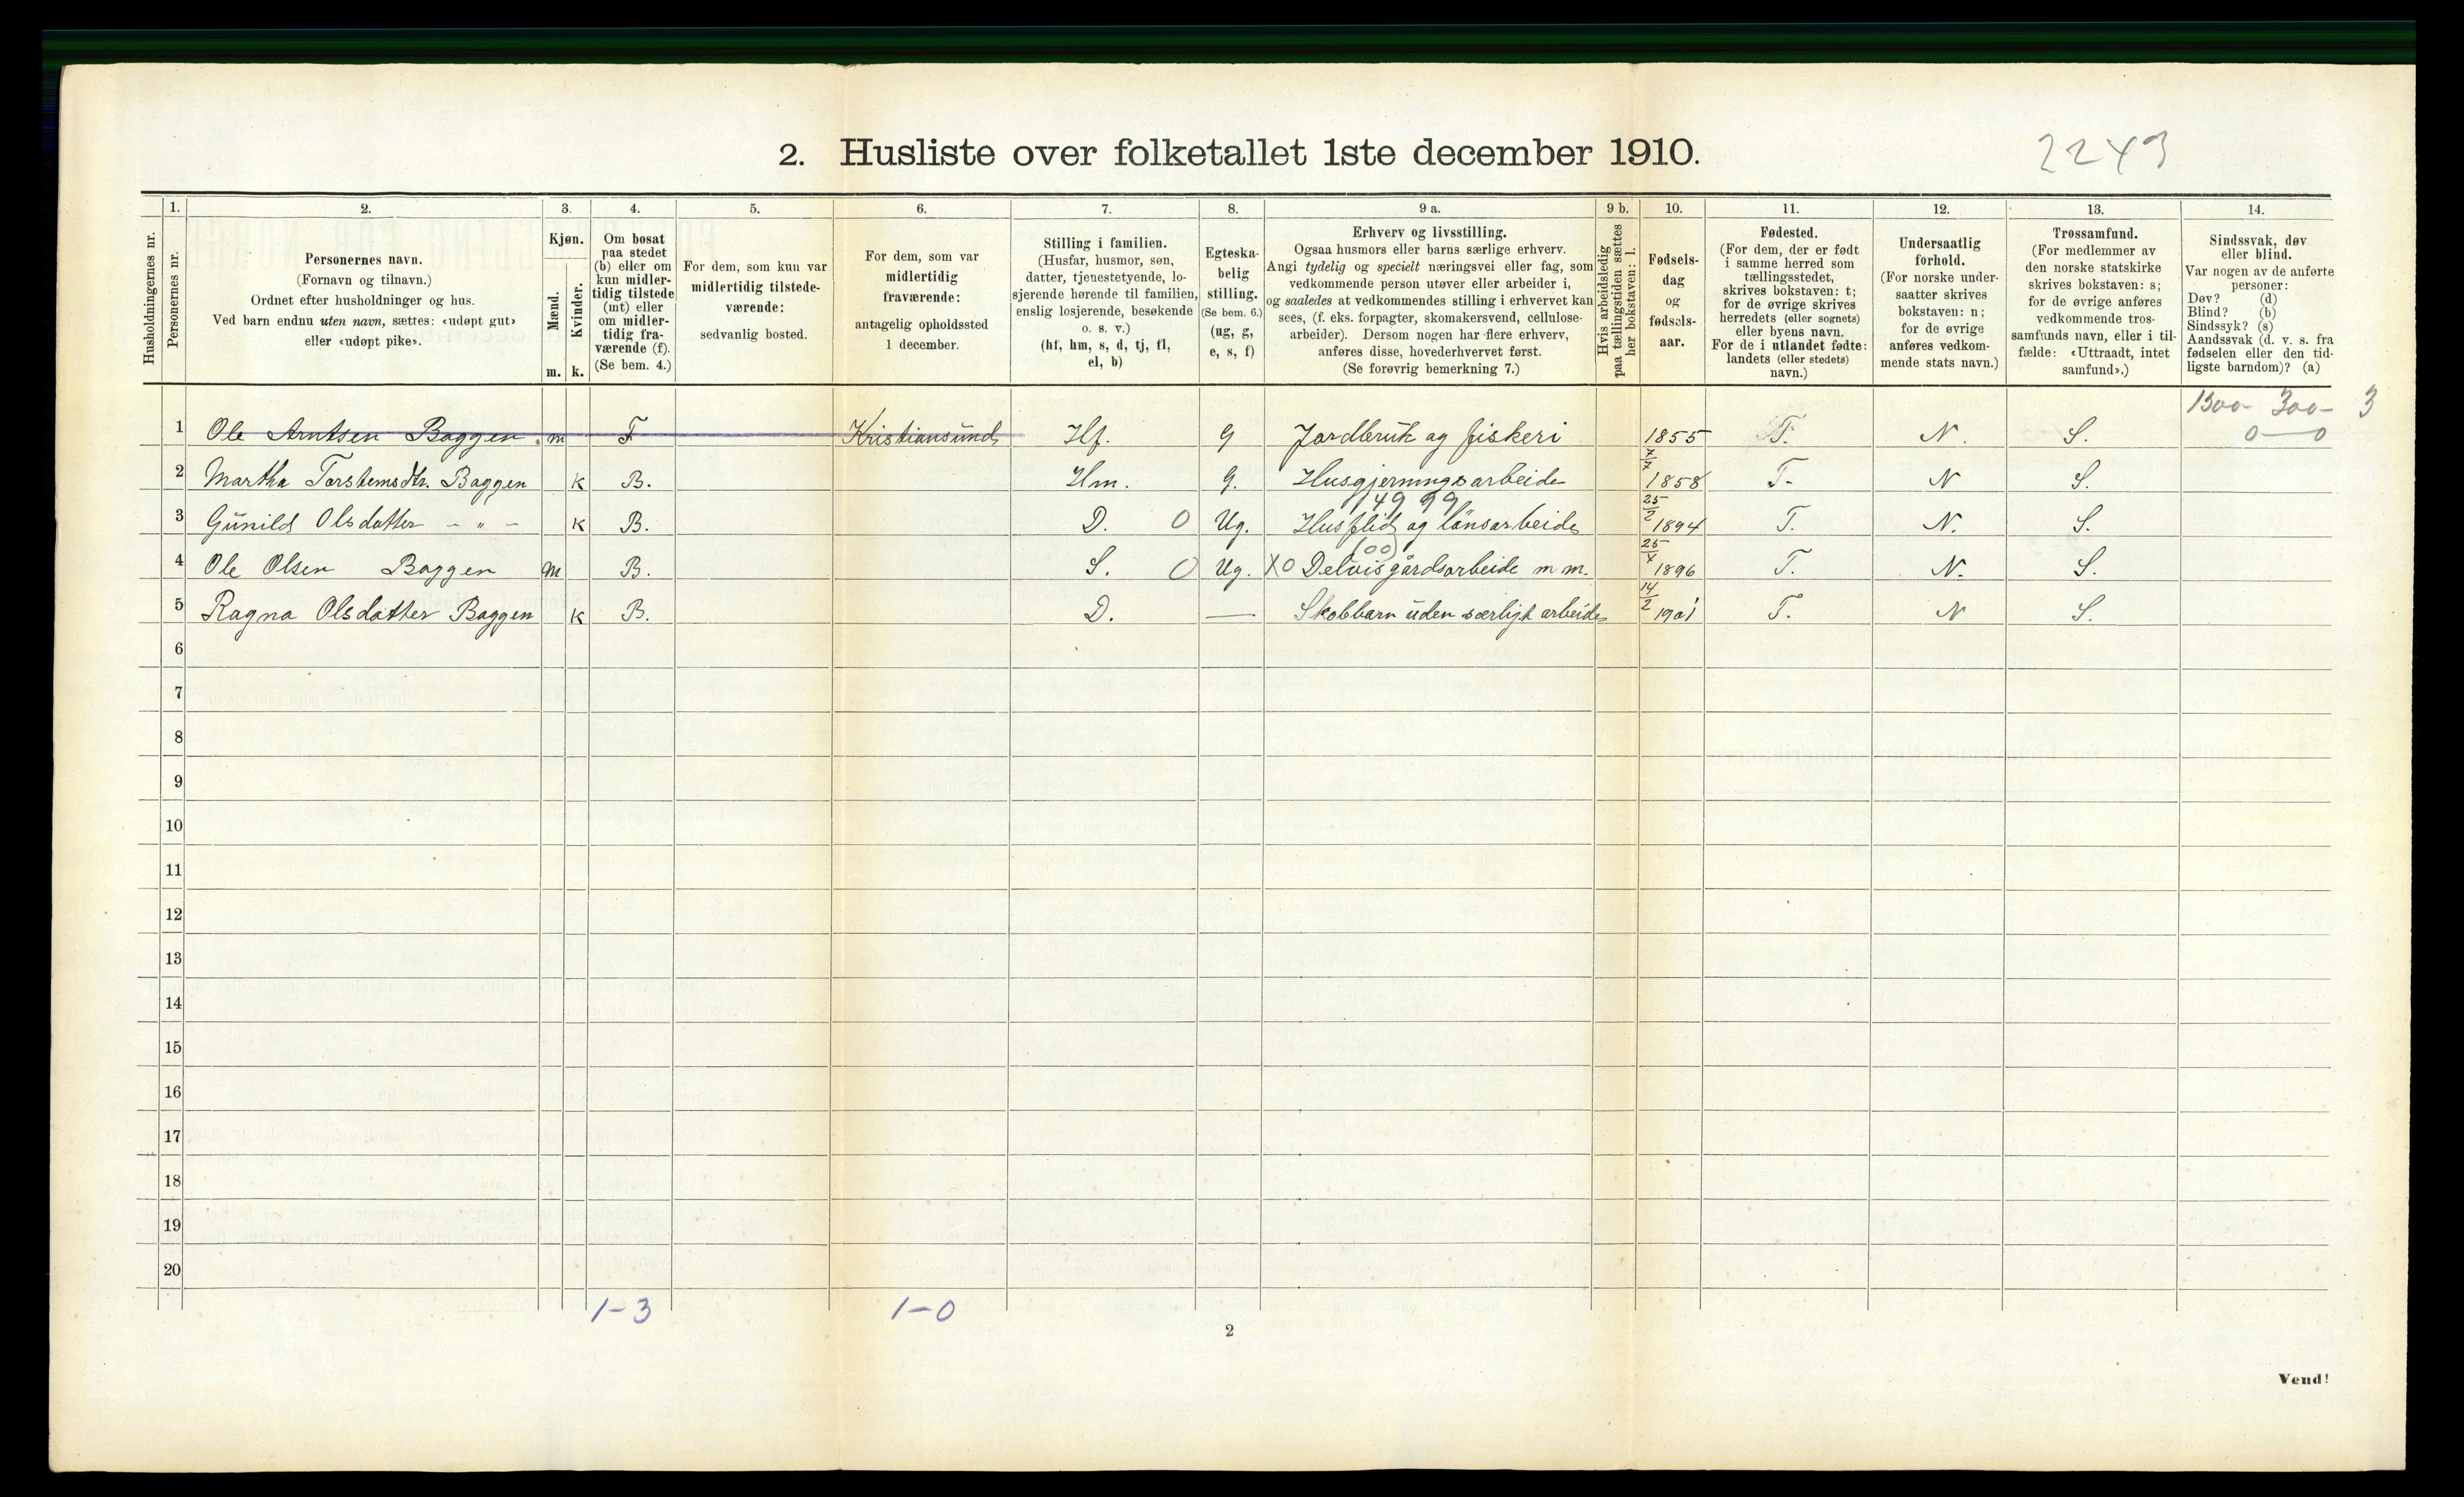 2. Husliste over folketallet 1ste december 1910.
2243
1. 2. 3. 4. 5. 6. 7. 8. 9 a. 9 b. 10. 11. 12. 13. 14.
Husholdningernes nr.
Personernes nr.
Personernes navn.
(Fornavn og tilnavn.)
Ordnet efter husholdninger og hus.
Ved barn endnu uten navn, sættes: «udøpt gut»
eller «udøpt pike».
Kjøn.
Mænd.
Kvinder.
m. k.
Om bosat
paa stedet
(b) eller om
kun midler-
tidig tilstede
(mt) eller
om midler-
tidig fra-
værende (f).
(Se bem. 4.)
For dem, som kun var
midlertidig tilstede-
værende:
sedvanlig bosted.
For dem, som var
midlertidig
fraværende:
antagelig opholdssted
1 december.
Stilling i familien.
(Husfar, husmor, søn,
datter, tjenestetyende, lo-
sjerende hørende til familien,
enslig losjerende, besøkende
o. s. v.)
(hf, hm, s, d, tj, fl,
el, b)
Egteska-
belig
stilling.
(Se bem. 6.)
(ug, g,
e, s, f)
Erhverv og livsstilling.
Ogsaa husmors eller barns særlige erhverv.
Angi tydelig og specielt næringsvei eller fag, som
vedkommende person utøver eller arbeider i,
og saaledes at vedkommendes stilling i erhvervet kan
sees, (f. eks. forpagter, skomakersvend, cellulose-
arbeider). Dersom nogen har flere erhverv,
anføres disse, hovederhvervet først.
(Se forøvrig bemerkning 7.)
Hvis arbeidsledig
paa tællingstiden sættes
her bokstaven: l.
Fødsels-
dag
og
fødsels-
aar.
Fødested.
(For dem, der er født
i samme herred som
tællingsstedet,
skrives bokstaven: t;
for de øvrige skrives
herredets (eller sognets)
eller byens navn.
For de i utlandet fødte:
landets (eller stedets)
navn.)
Undersaatlig
forhold.
(For norske under-
saatter skrives
bokstaven: n;
for de øvrige
anføres vedkom-
mende stats navn.)
Trossamfund.
(For medlemmer av
den norske statskirke
skrives bokstaven: s;
for de øvrige anføres
vedkommende tros-
samfunds navn, eller i til-
fælde: «Uttraadt, intet
samfund».)
Sindssvak, døv
eller blind.
Var nogen av de anførte
personer:
Døv? (d)
Blind? (b)
Sindssyk? (s)
Aandssvak (d. v. s. fra
fødselen eller den tid-
ligste barndom)? (a)
1300- 300- 3
1 Ole Arntsen Baggen m F Kristiansund Hf. G Jordbruk og fiskeri 1855 T. N. S. 0 — 0
2 Martha Torstensdtr. Baggen k B. Hm. G. Husgjerningsarbeide 7/7 1858 T. N S.
49 99
3 Gunild Olsdatter - " - k B. D. 0 Ug. Husflid og lönsarbeide 25/2 1894 T. N. S.
(00)
4 Ole Olsen Baggen m B. S. 0 Ug. X0 Delvis gårdsarbeide m m. 25/7 1896 T. N. S.
5 Ragna Olsdatter Baggen k B. D. — Skolbarn uden særligt arbeide 14/2 1901 T. N S.
6
7
8
9
10
11
12
13
14
15
16
17
18
19
20
1-3 1-0
2
Vend!